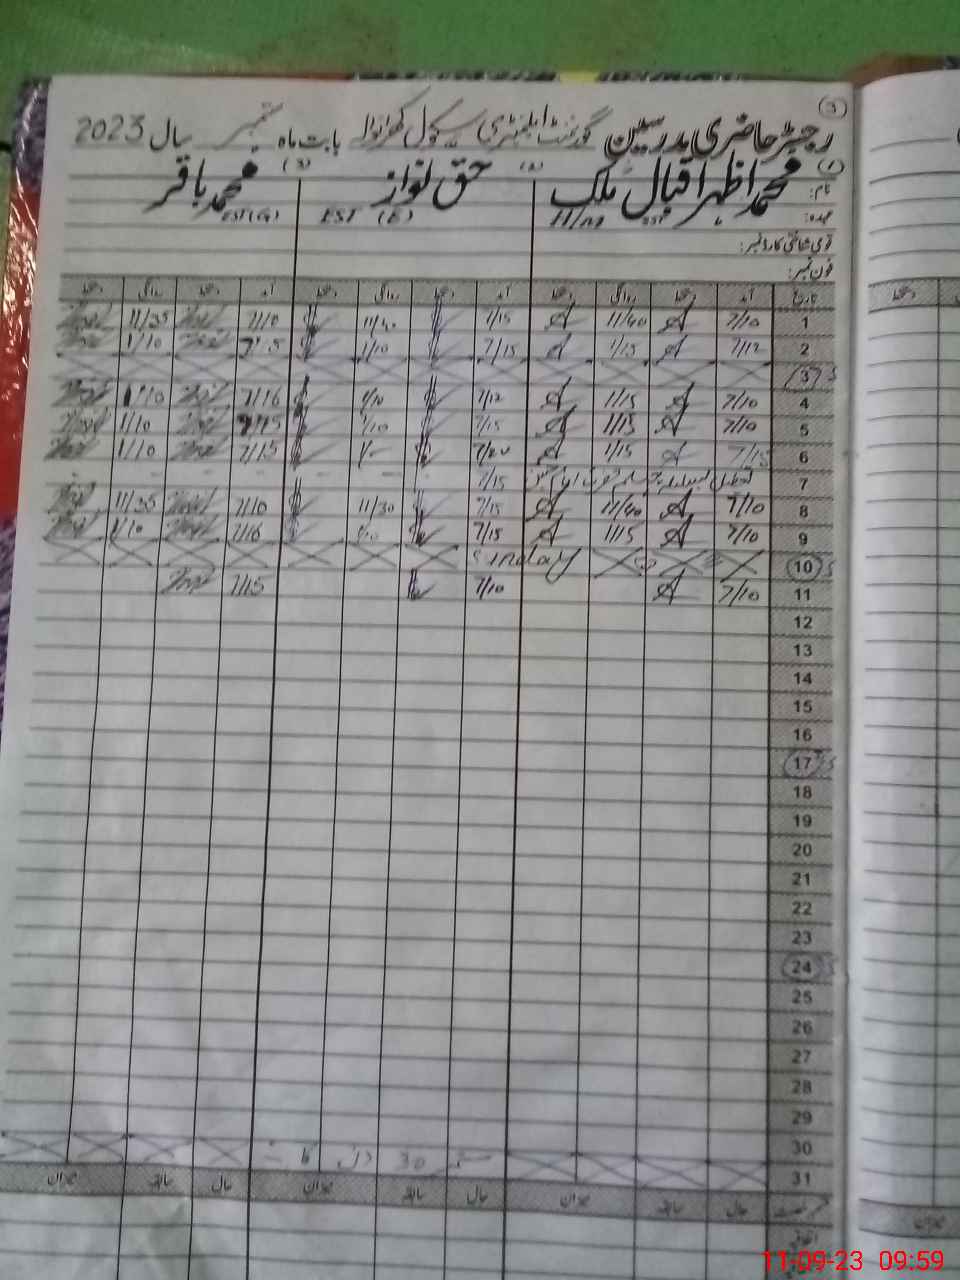 3
رجسٹر حاضری مدرسین گورنمنٹ ایلیمنٹری سکول بابت ماہ ستمبر سال 2023
نام: (1) محمد اظہر اقبال ملک (2) حق نواز (3) محمد باقر
عہدہ: EST EST (E) EST (G)
قومی شناختی کارڈ نمبر:
فون نمبر:
تاریخ آمد دستخط روانگی دستخط آمد دستخط روانگی دستخط آمد دستخط روانگی دستخط
1 7/10 11/40 7/15 11/40 7/10 11/35
2 7/12 1/15 7/15 1/10 7/15 1/10
3
4 7/10 1/15 7/12 1/10 7/16 1/10
5 7/10 1/15 7/15 1/10 7/15 1/10
6 7/15 1/15 7/15 1/10
7 7/15
8 7/10 11/40 7/15 11/30 7/10 11/35
9 7/10 1/15 7/15 1/10 7/16 1/10
10 Sunday
11 7/10 7/10 7/15
12
13
14
15
16
17
18
19
20
21
22
23
24
25
26
27
28
29
30 ستمبر 30 دن کا
31
رخصت حال سابقہ میزان حال سابقہ میزان حال سابقہ میزان
اتفاقی
11-09-23 09:59